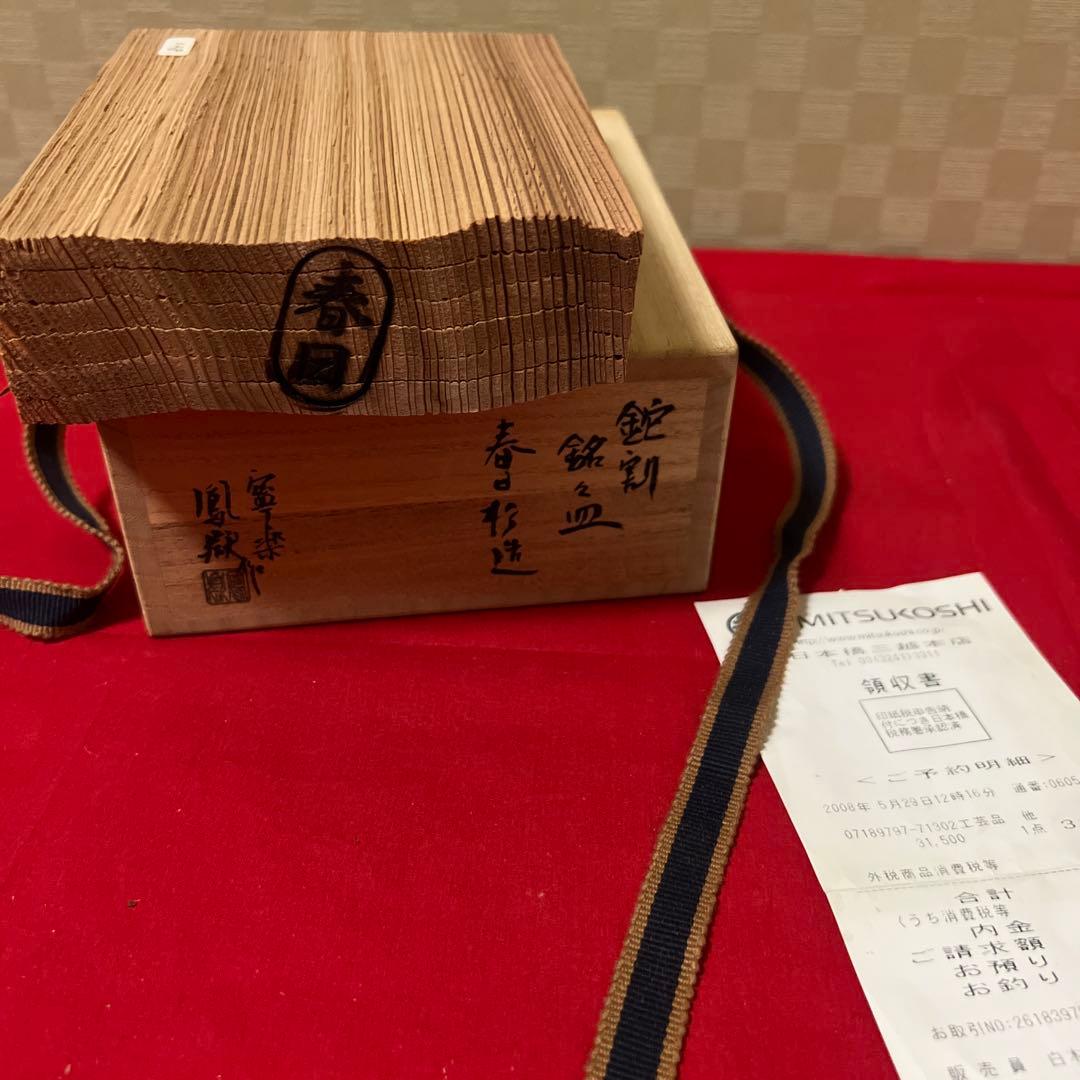 春日
鉈割
銘々皿
春日杉造
寧楽作
鳳嶽
MITSUKOSHI
http://www.mitsukoshi.co.jp/
日本橋三越本店
Tel 03(3241)3311
領収書
印紙税申告納
付につき日本橋
税務署承認済
<ご予約明細>
2008年 5月29日12時16分 通番:0605
07189797-71302工芸品 他
31,500 1点 3
外税商品消費税等
合計
(うち消費税等
内金
ご請求額
お預り
お釣り
お取引NO:2618397
販売員